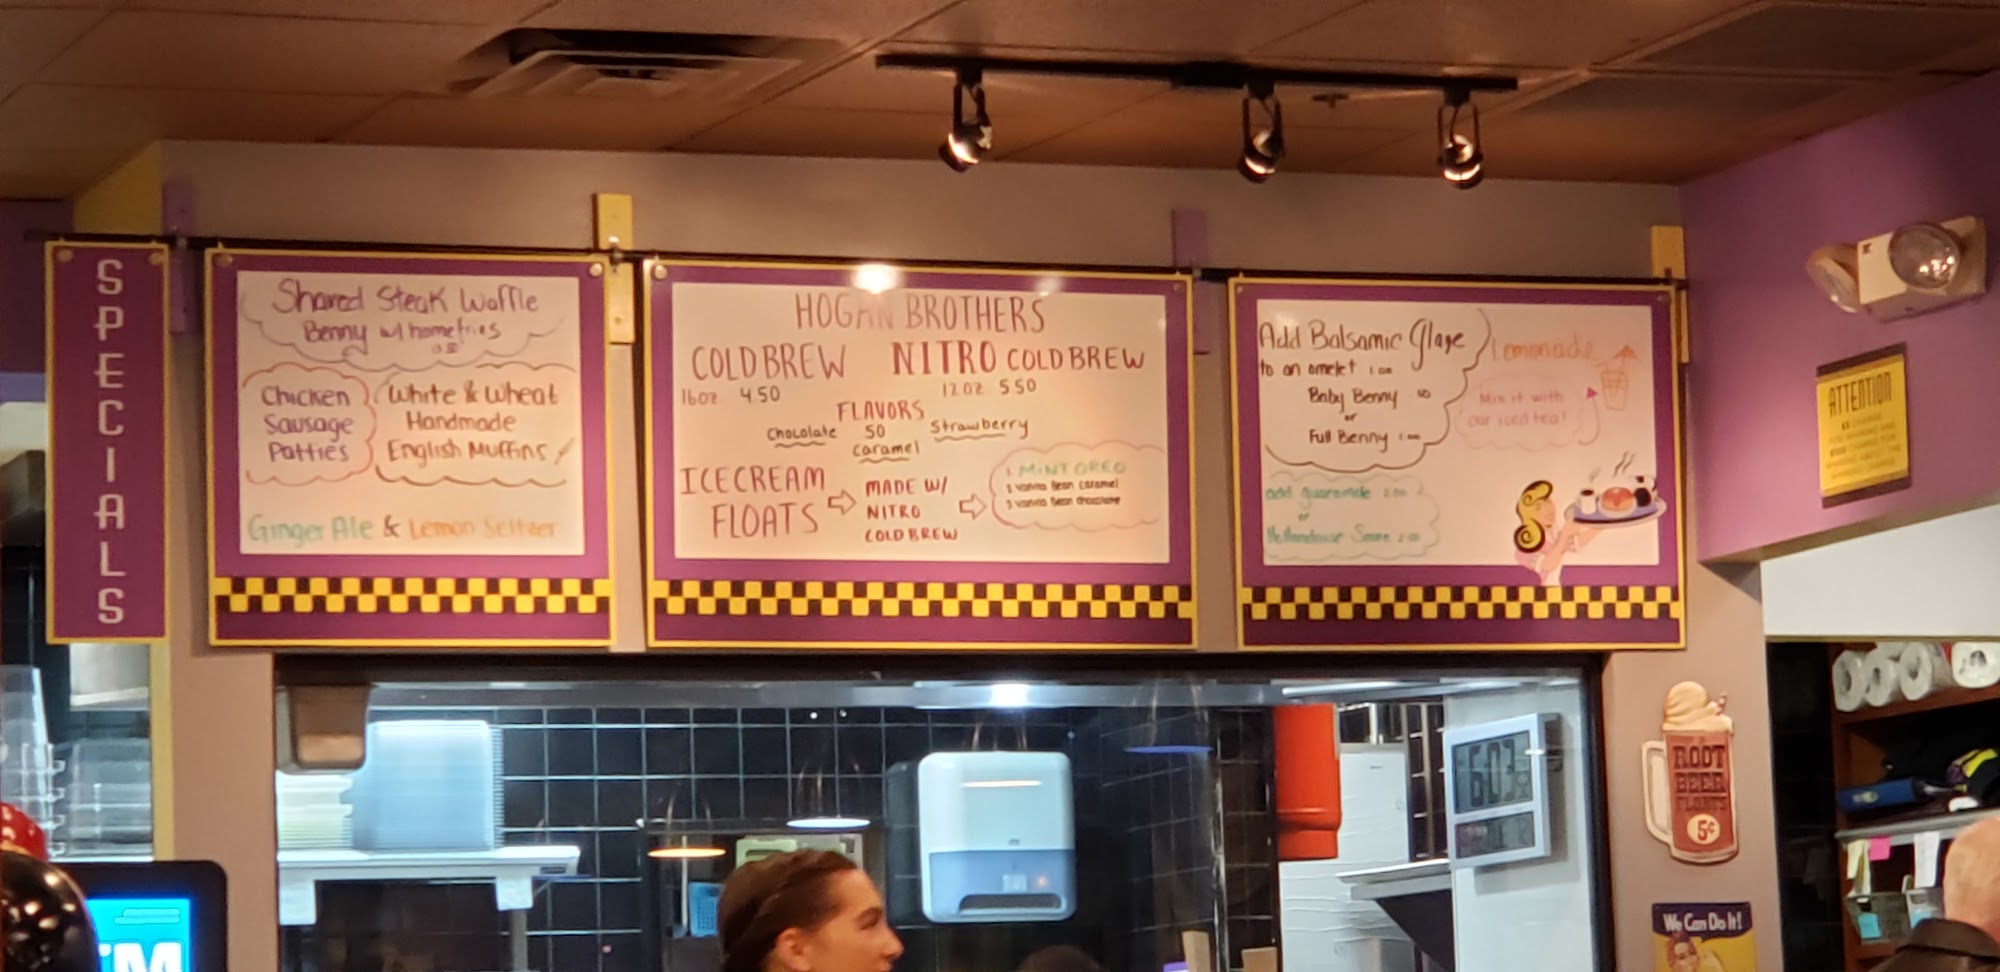 SPECIALS
Shaved Steak Waffle
Benny w/ homefries
Chicken
Sausage
Patties
White & Wheat
Handmade
English Muffins
Ginger Ale & Lemon Seltzer
HOGAN BROTHERS
COLD BREW
16oz 4.50
NITRO COLD BREW
12oz 5.50
FLAVORS
50
Chocolate
Strawberry
Caramel
ICECREAM
FLOATS
MADE W/
NITRO
COLD BREW
1. MINT OREO
2 Vanilla Bean Caramel
3 Vanilla Bean Chocolate
Add Balsamic Glaze
to an omelet 1.00
Baby Benny 50
or
Full Benny 1.00
Lemonade
Mix it with
our iced tea!
add guacamole 2.00
or
Hollandaise 2.00
ATTENTION
ROOT
BEER
FLOATS
5¢
We Can Do It!
6:03